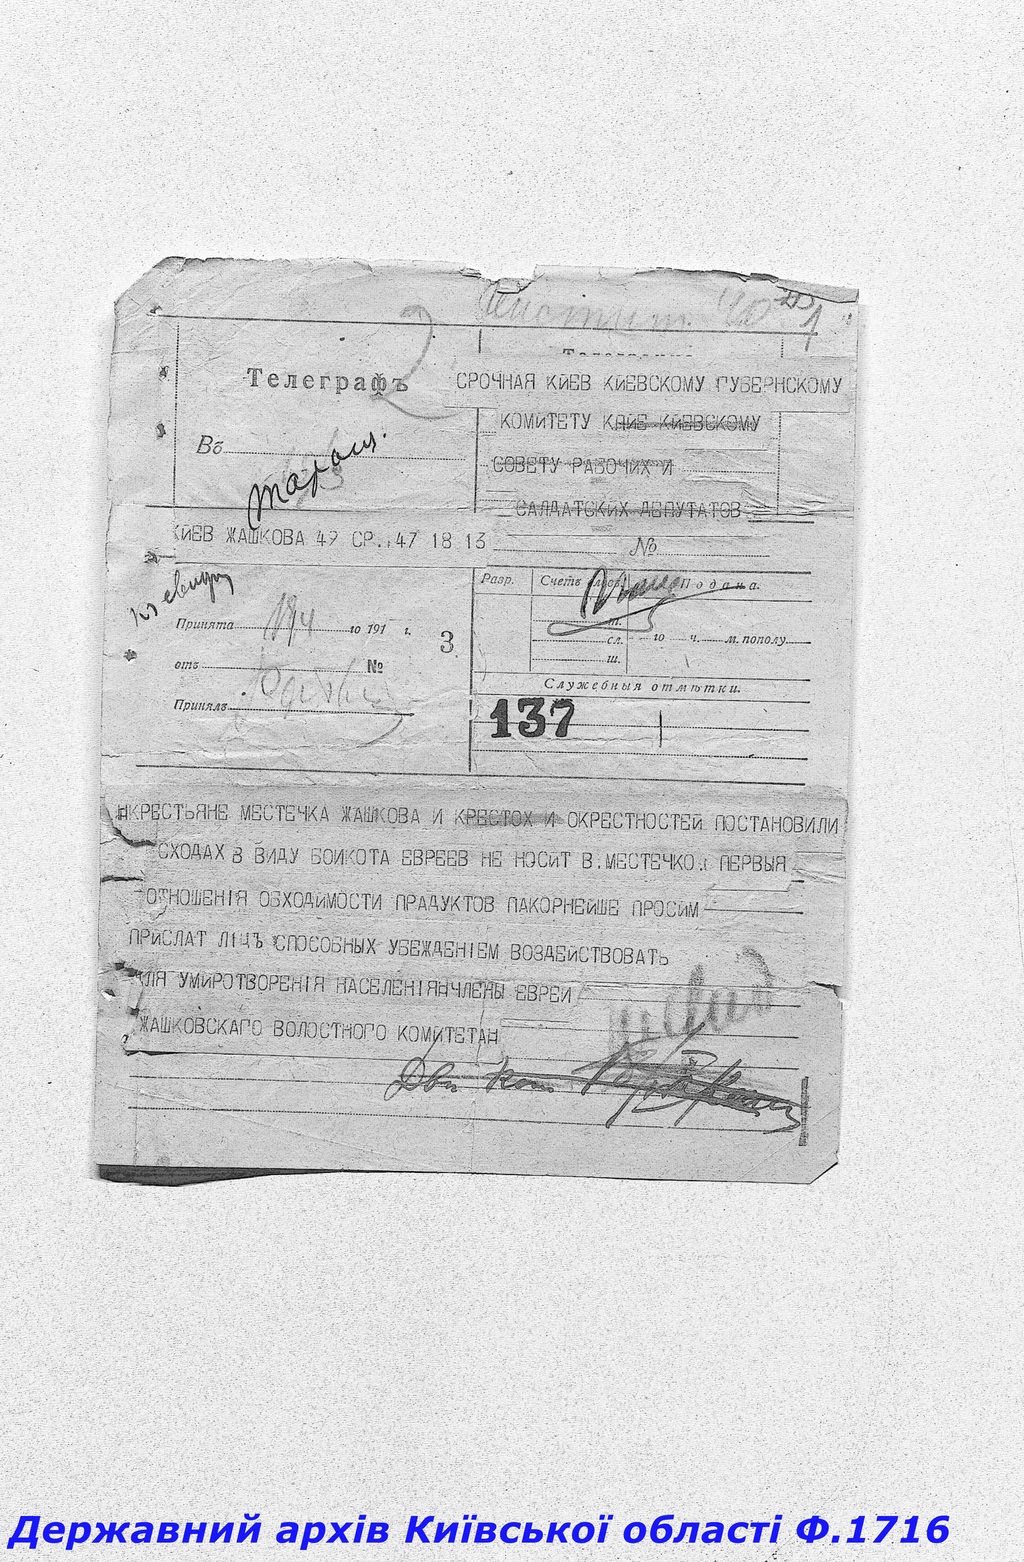 1
2
Телеграфъ
СРОЧНАЯ КИЕВ КИЕВСКОМУ ГУБЕРНСКОМУ
КОМИТЕТУ КЛИЕ КИЕВСКОМУ
Въ
СОВЕТУ РАБОЧИХ И
САЛДАТСКИХ ДЕПУТАТОВ
КИЕВ ЖАШКОВА 49 СР.,47 18 13
№
Разр. Счетъ Подана.
Принята 19/4 го 191 г.
3
т.
сл. го ч. м. пополу
отъ №
ш.
Служебныя отмѣтки.
Принялъ
137
НКРЕСТЬЯНЕ МЕСТЕЧКА ЖАШКОВА И КРЕСТОХ И ОКРЕСТНОСТЕЙ ПОСТАНОВИЛИ
СХОДАХ В ВИДУ БОИКОТА ЕВРЕЕВ НЕ НОСИТ В.МЕСТЕЧКО ПЕРВЫЯ
ОТНОШЕНІЯ ОБХОДИМОСТИ ПРАДУКТОВ ПАКОРНЕЙШЕ ПРОСИМ
ПРИСЛАТ ЛІЦЪ СПОСОБНЫХ УБЕЖДЕНІЕМ ВОЗДЕЙСТВОВАТЬ
ЛЯ УМИРОТВОРЕНІЯ НАСЕЛЕНІЯНЧЛЕНЫ ЕВРЕИ
ЖАШКОВСКАГО ВОЛОСТНОГО КОМИТЕТАН
Державний архів Київської області Ф.1716